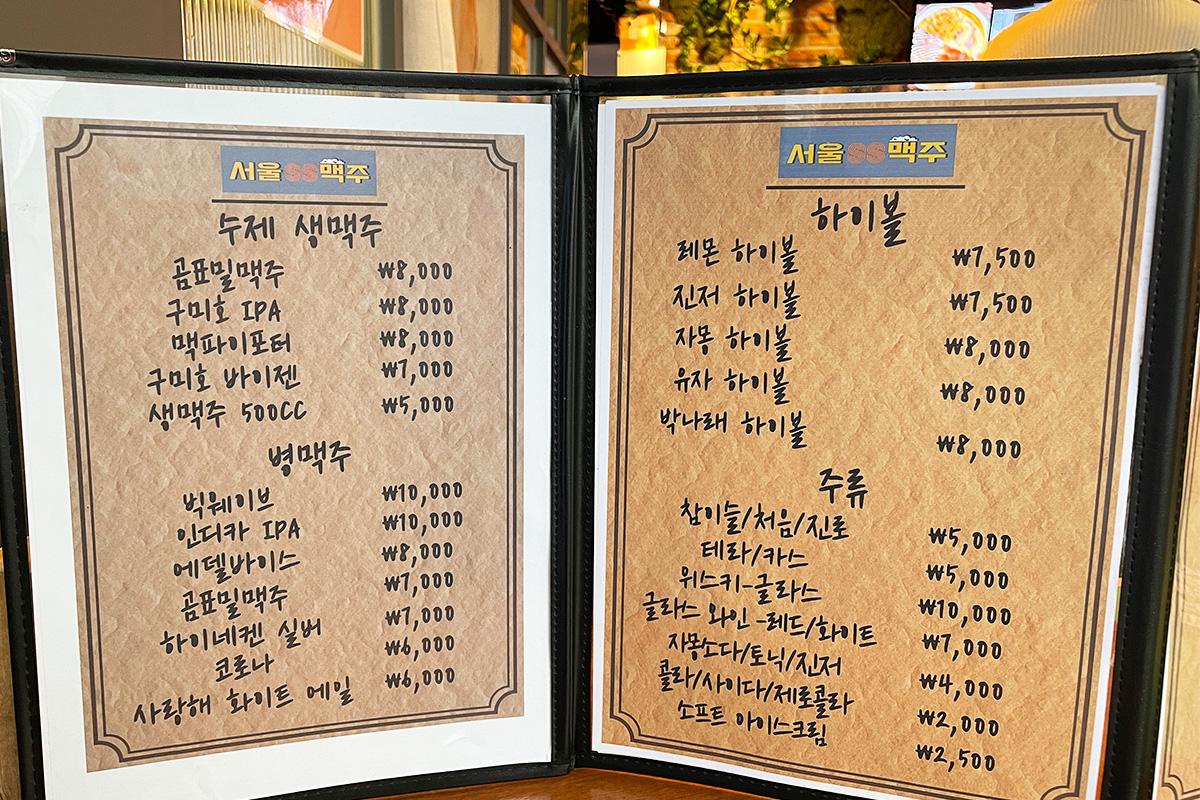 서울 SS 맥주
수제 생맥주
곰표밀맥주 ₩8,000
구미호 IPA ₩8,000
맥파이포터 ₩8,000
구미호 바이젠 ₩7,000
생맥주 500CC ₩5,000
병맥주
빅웨이브 ₩10,000
인디카 IPA ₩10,000
에델바이스 ₩8,000
곰표밀맥주 ₩7,000
하이네켄 실버 ₩7,000
코로나 ₩6,000
사랑해 화이트 에일 ₩6,000
서울 SS 맥주
하이볼
레몬 하이볼 ₩7,500
진저 하이볼 ₩7,500
자몽 하이볼 ₩8,000
유자 하이볼 ₩8,000
박나래 하이볼 ₩8,000
주류
참이슬/처음/진로 ₩5,000
테라/카스 ₩5,000
위스키-글라스 ₩10,000
글라스 와인 -레드/화이트 ₩7,000
자몽소다/토닉/진저 ₩4,000
콜라/사이다/제로콜라 ₩2,000
소프트 아이스크림 ₩2,500